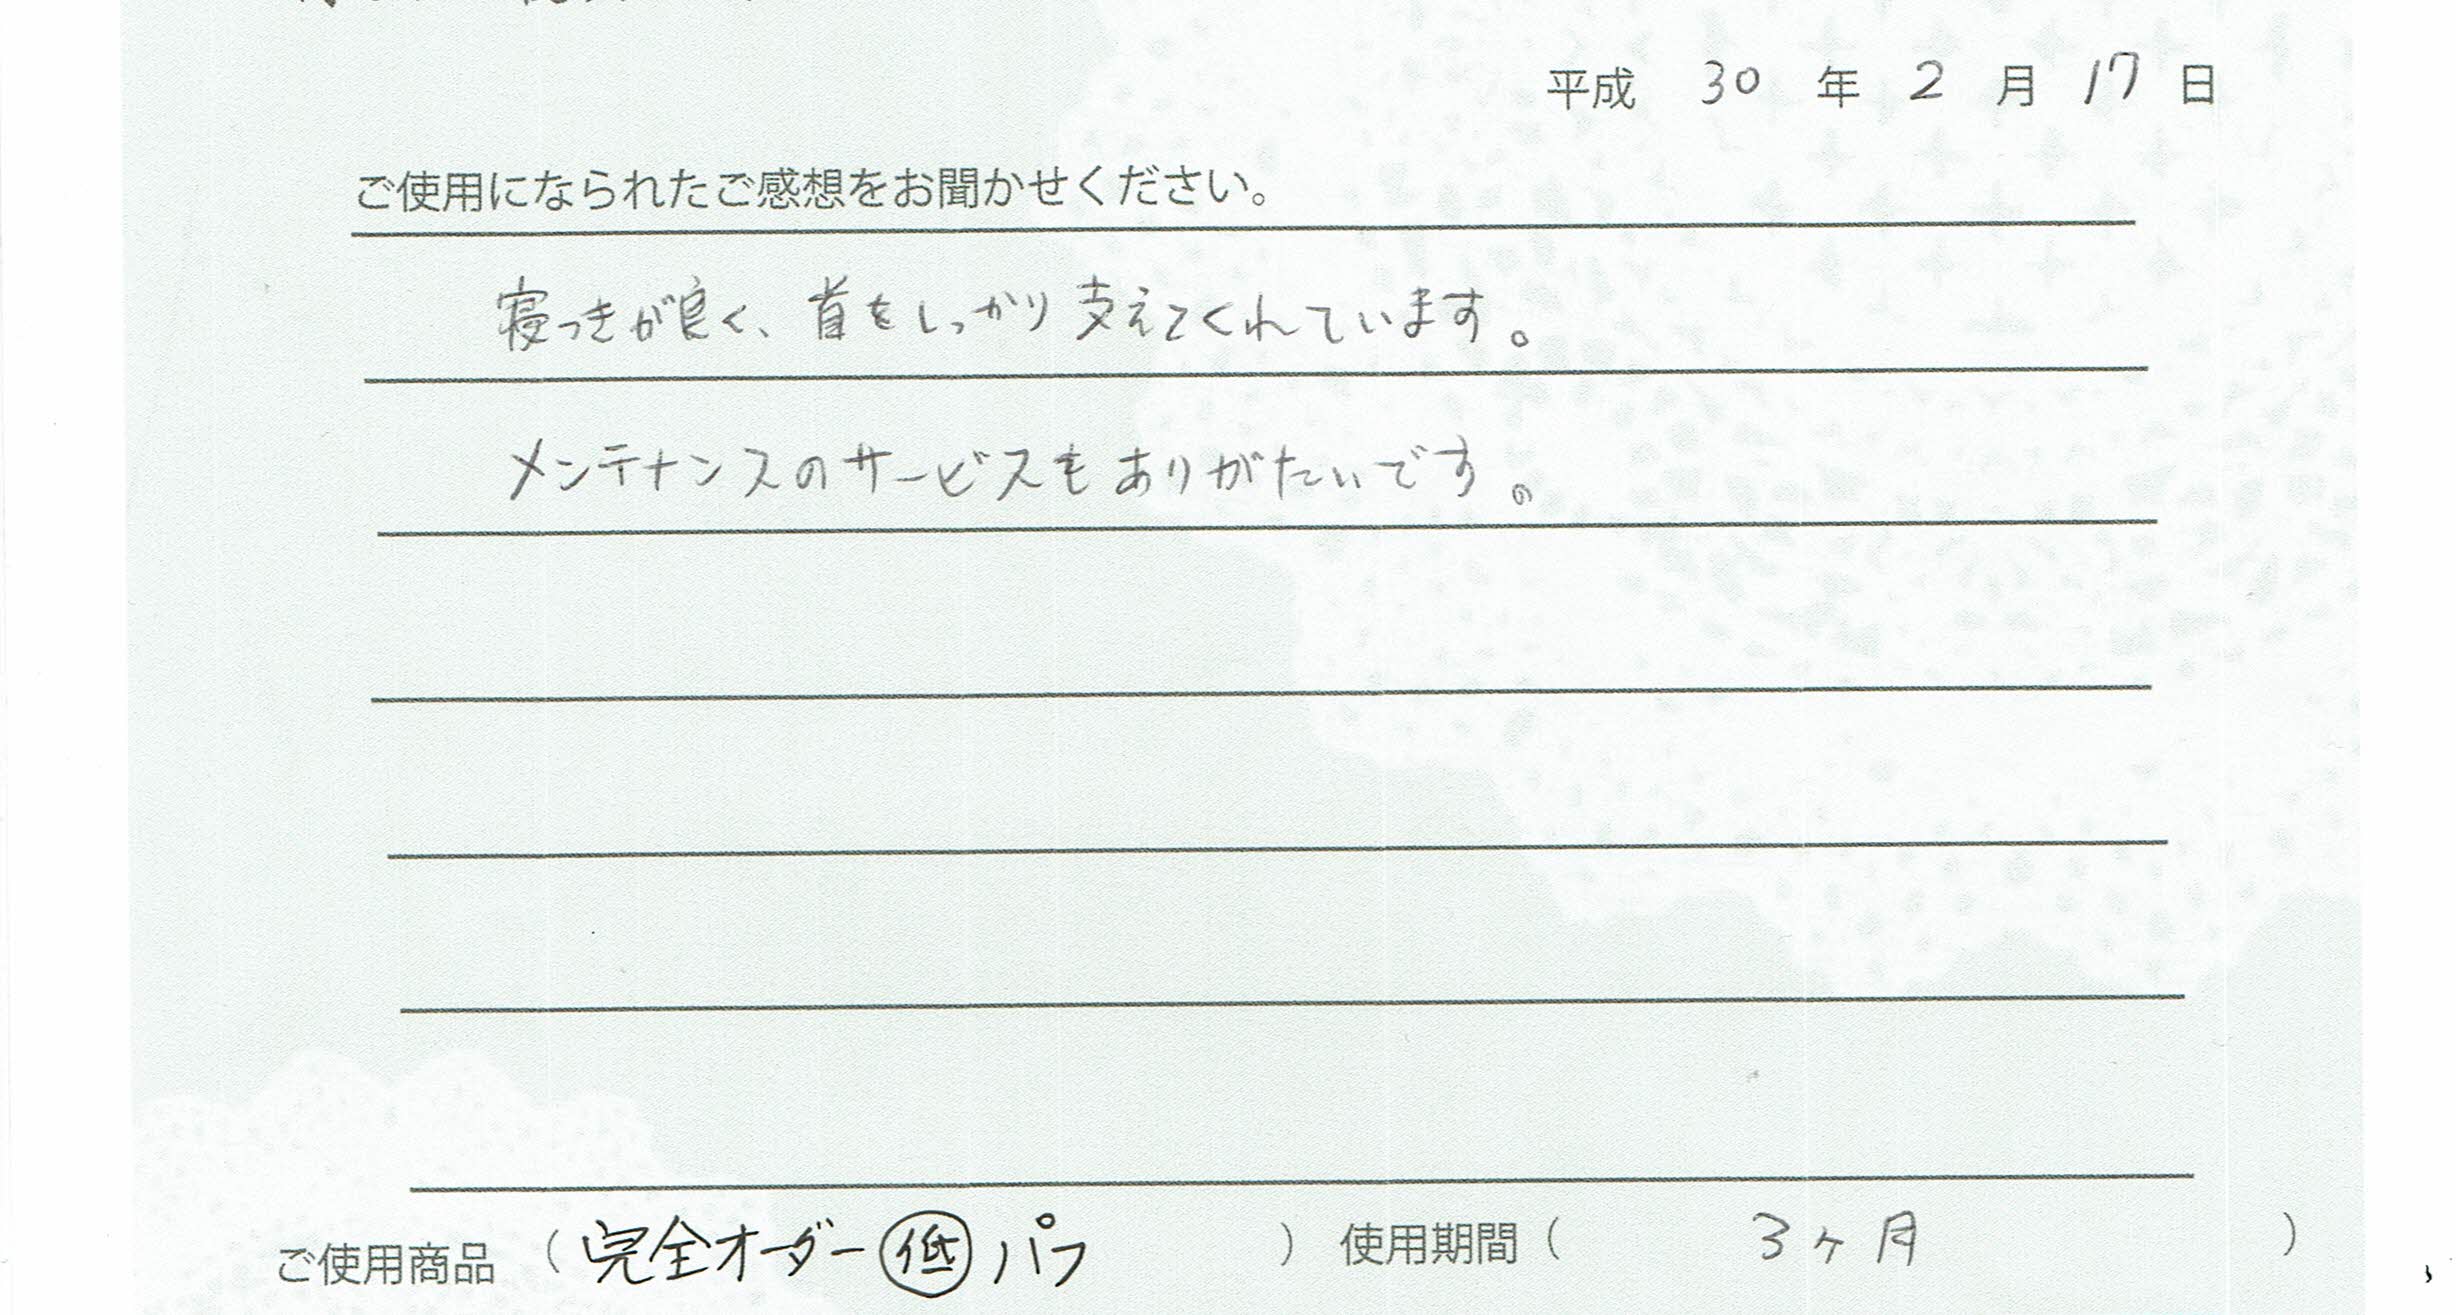 平成 30 年 2 月 17 日
ご使用になられたご感想をお聞かせください。
寝つきが良く、首をしっかり支えてくれています。
メンテナンスのサービスもありがたいです。
ご使用商品 ( 完全オーダー 低 パフ ) 使用期間 ( 3ヶ月 )